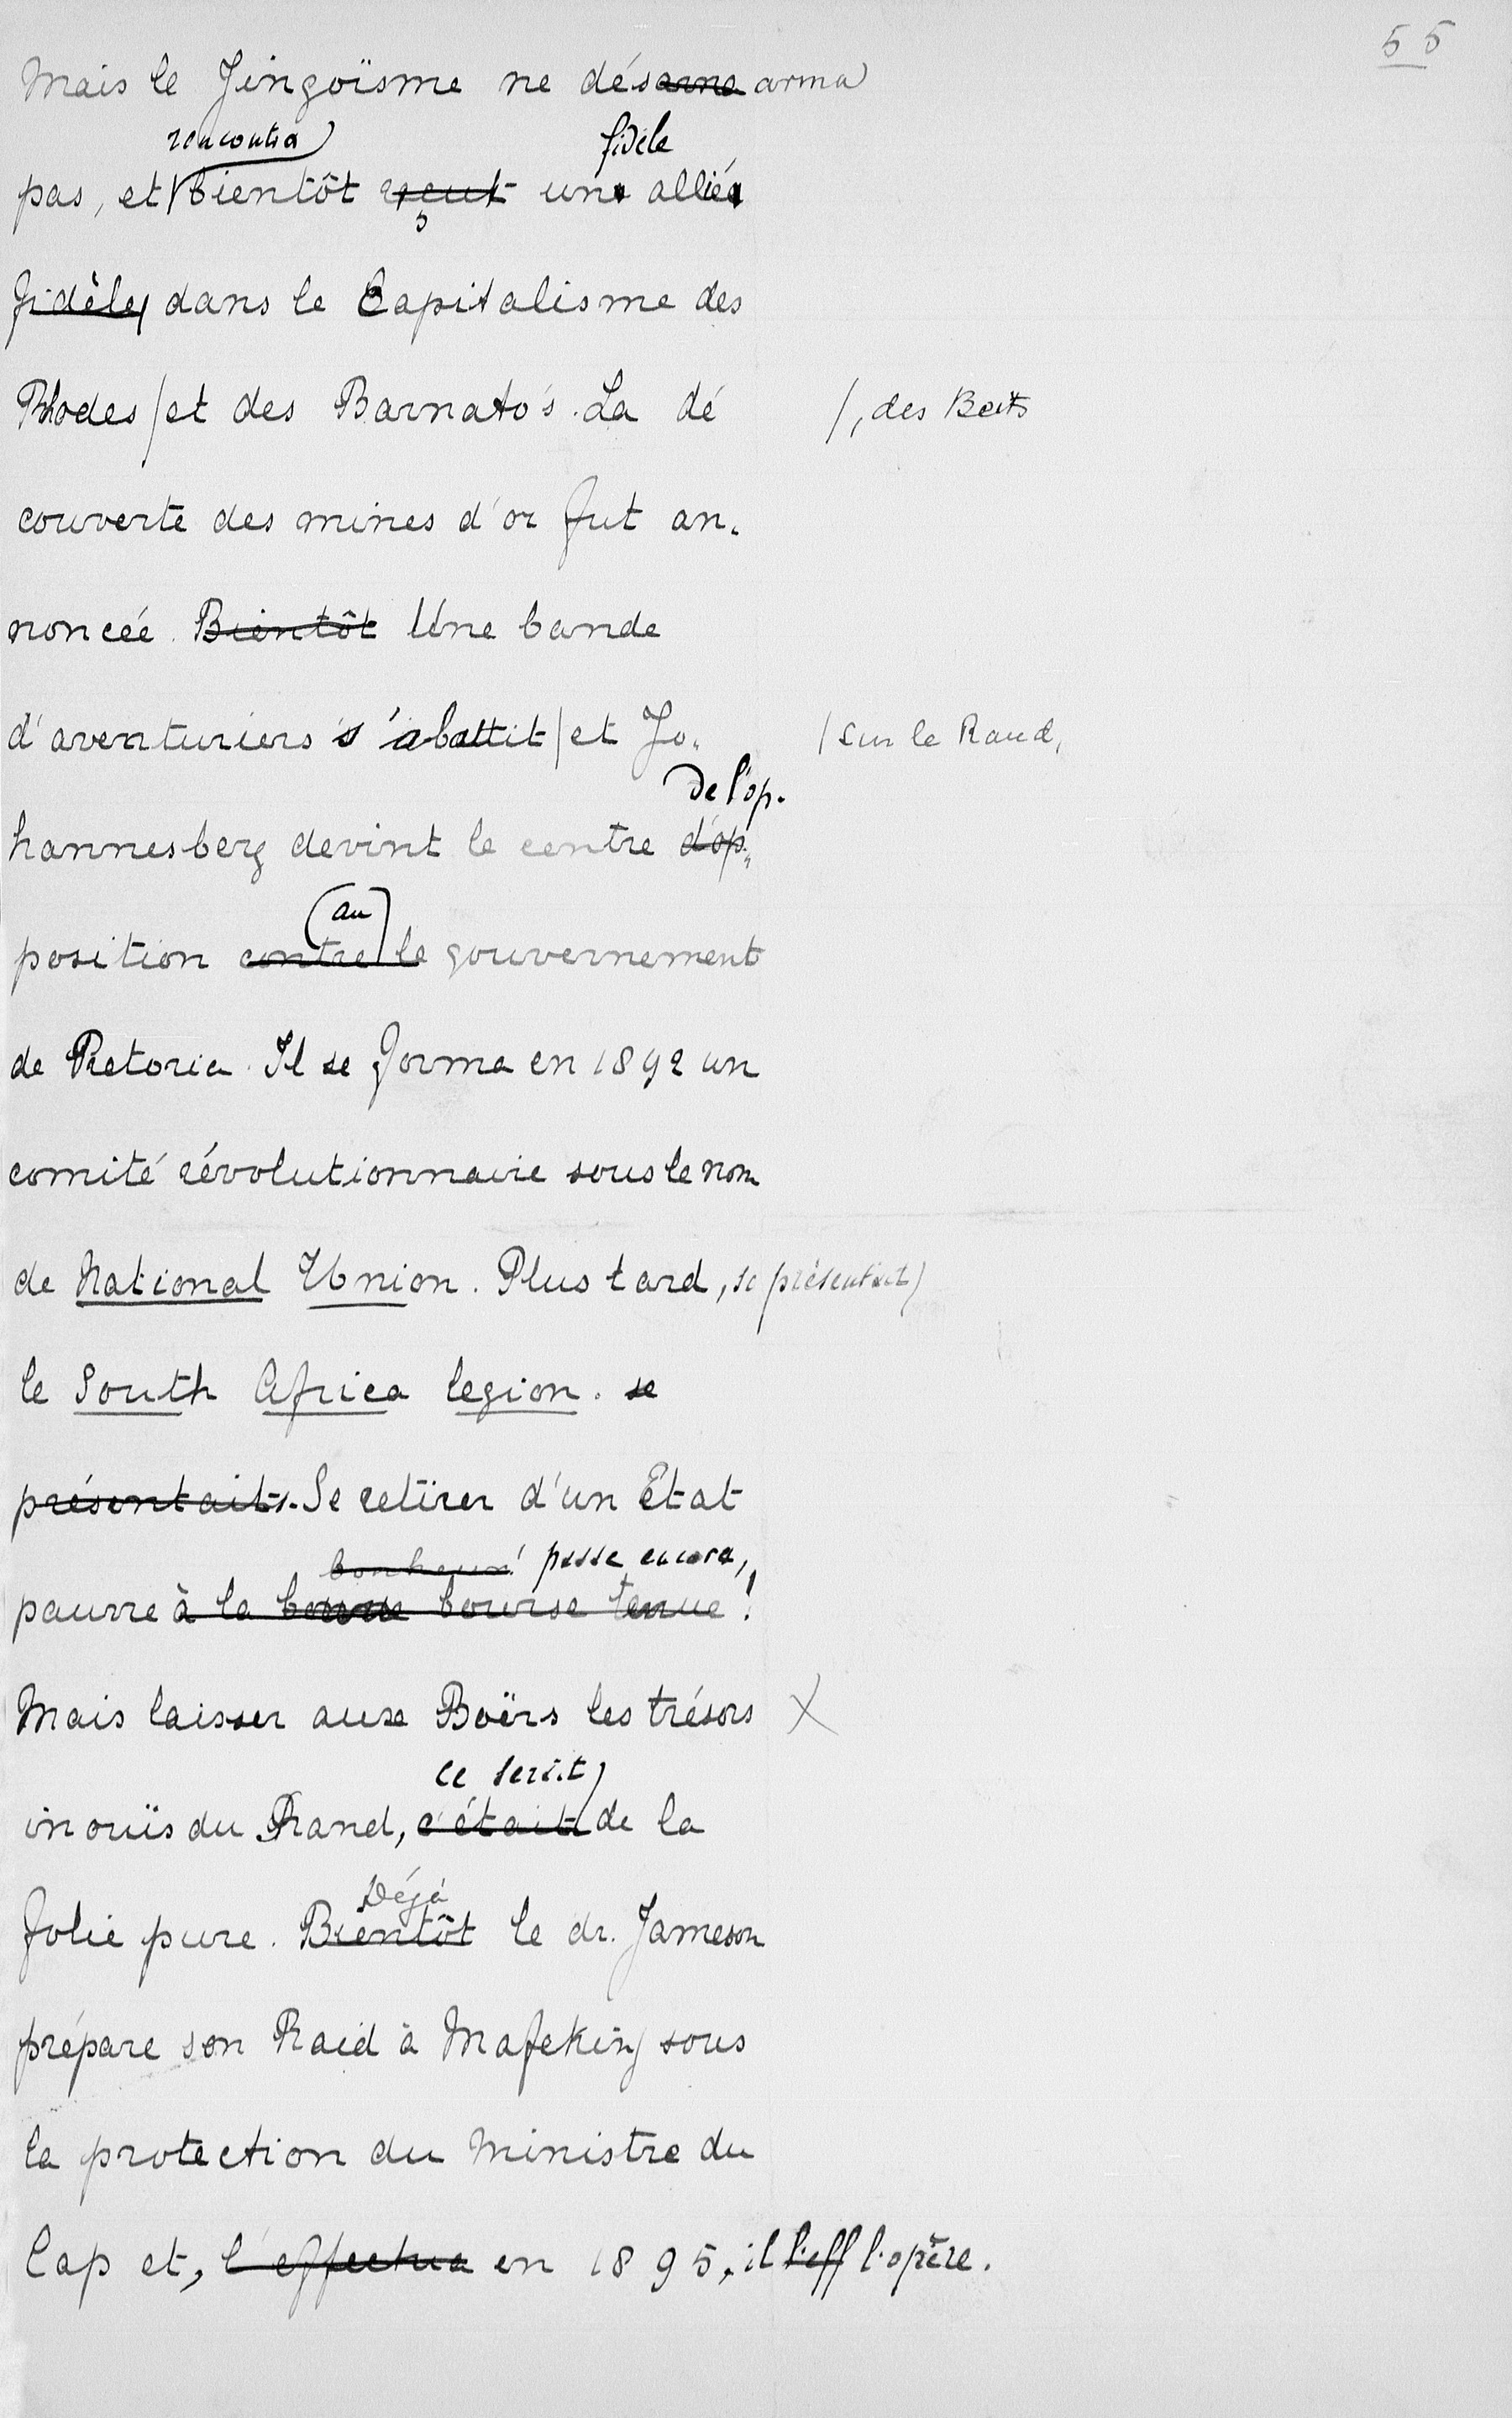 55
Mais le Jingoïsme ne désarma arma
rencontra fidèle
pas, et bientôt reçut un allié
fidèle dans le Capitalisme des
Rhodes / et des Barnato's. La dé /, des Beits
couverte des mines d'or fut an-
noncée. Bientôt Une bande
d'aventuriers s'abattit / et Jo- / sur le Rand,
de l'op-
hannesberg devint le centre d'op-
au
position contre le gouvernement
de Pretoria. Il se forma en 1892 un
comité révolutionnaire sous le nom
de National Union. Plus tard, se présentait
le South Africa legion. se
présentait. Se retirer d'un Etat
bonheur! passe encore,
pauvre à la bourse tenue!
Mais laisser aux Boërs les trésors X
ce serait
inouïs du Rand, c'était de la
Déjà
folie pure. Bientôt le dr. Jameson
prépare son Raid à Mafeking sous
la protection du Ministre du
Cap et, l'effectua en 1895, il l'eff l'opère.